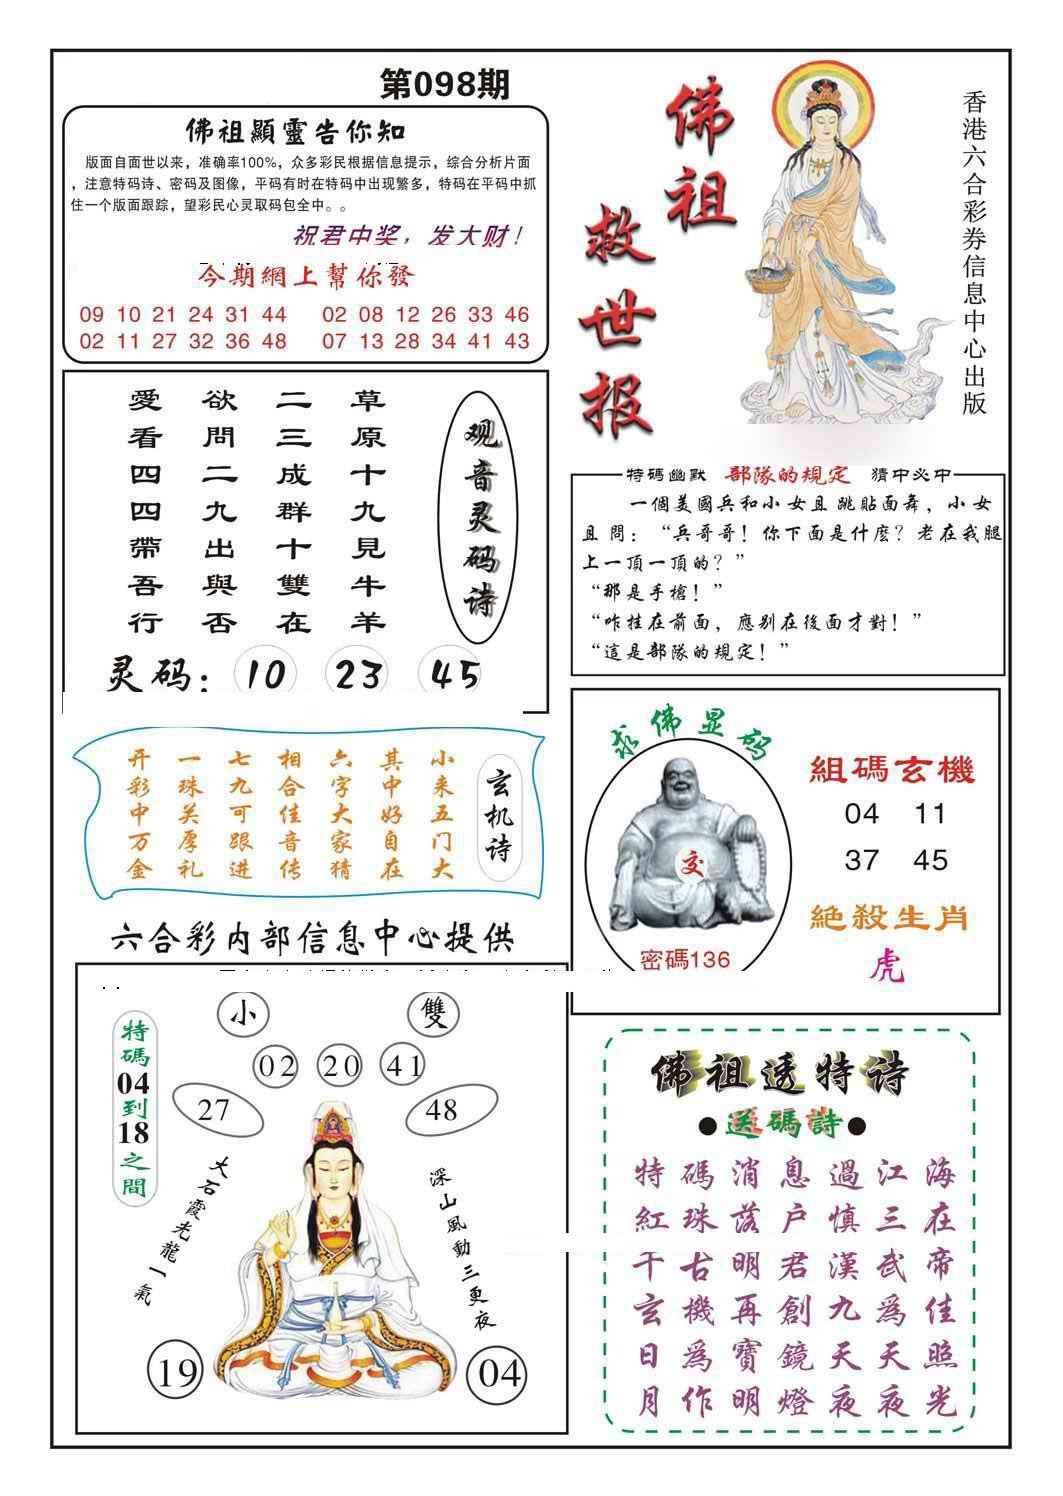 第098期
佛祖顯靈告你知
版面自面世以来，准确率100%，众多彩民根据信息提示，综合分析片面
，注意特码诗、密码及图像，平码有时在特码中出现繁多，特码在平码中抓
住一个版面跟踪，望彩民心灵取码包全中。。
祝君中奖，发大财！
今期網上幫你發
09 10 21 24 31 44 02 08 12 26 33 46
02 11 27 32 36 48 07 13 28 34 41 43
佛祖
救世报
香港六合彩券信息中心出版
观音灵码诗
草原十九見牛羊
二三成群十雙在
欲問二九出與否
愛看四四帶吾行
灵码：10 23 45
特碼幽默 部隊的規定 猜中必中
一個美國兵和小女且跳貼面舞，小女
且問：“兵哥哥！你下面是什麽？老在我腿
上一頂一頂的？”
“那是手槍！”
“咋挂在前面，應别在後面才對！”
“這是部隊的規定！”
玄机诗
小来五门大
其中好自在
六字大家猜
相合佳音传
七九可跟进
一珠关厚礼
开彩中万金
求佛显码
交
密碼136
組碼玄機
04 11
37 45
絶殺生肖
虎
六合彩内部信息中心提供
特碼04到18之間
小 雙
02 20 41
27 48
大石霞光龍一氣
深山風動三更夜
19 04
佛祖透特诗
●送碼詩●
特碼消息過江海
紅珠落户慎三在
千古明君漢武帝
玄機再創九爲佳
日爲寶鏡天天照
月作明燈夜夜光